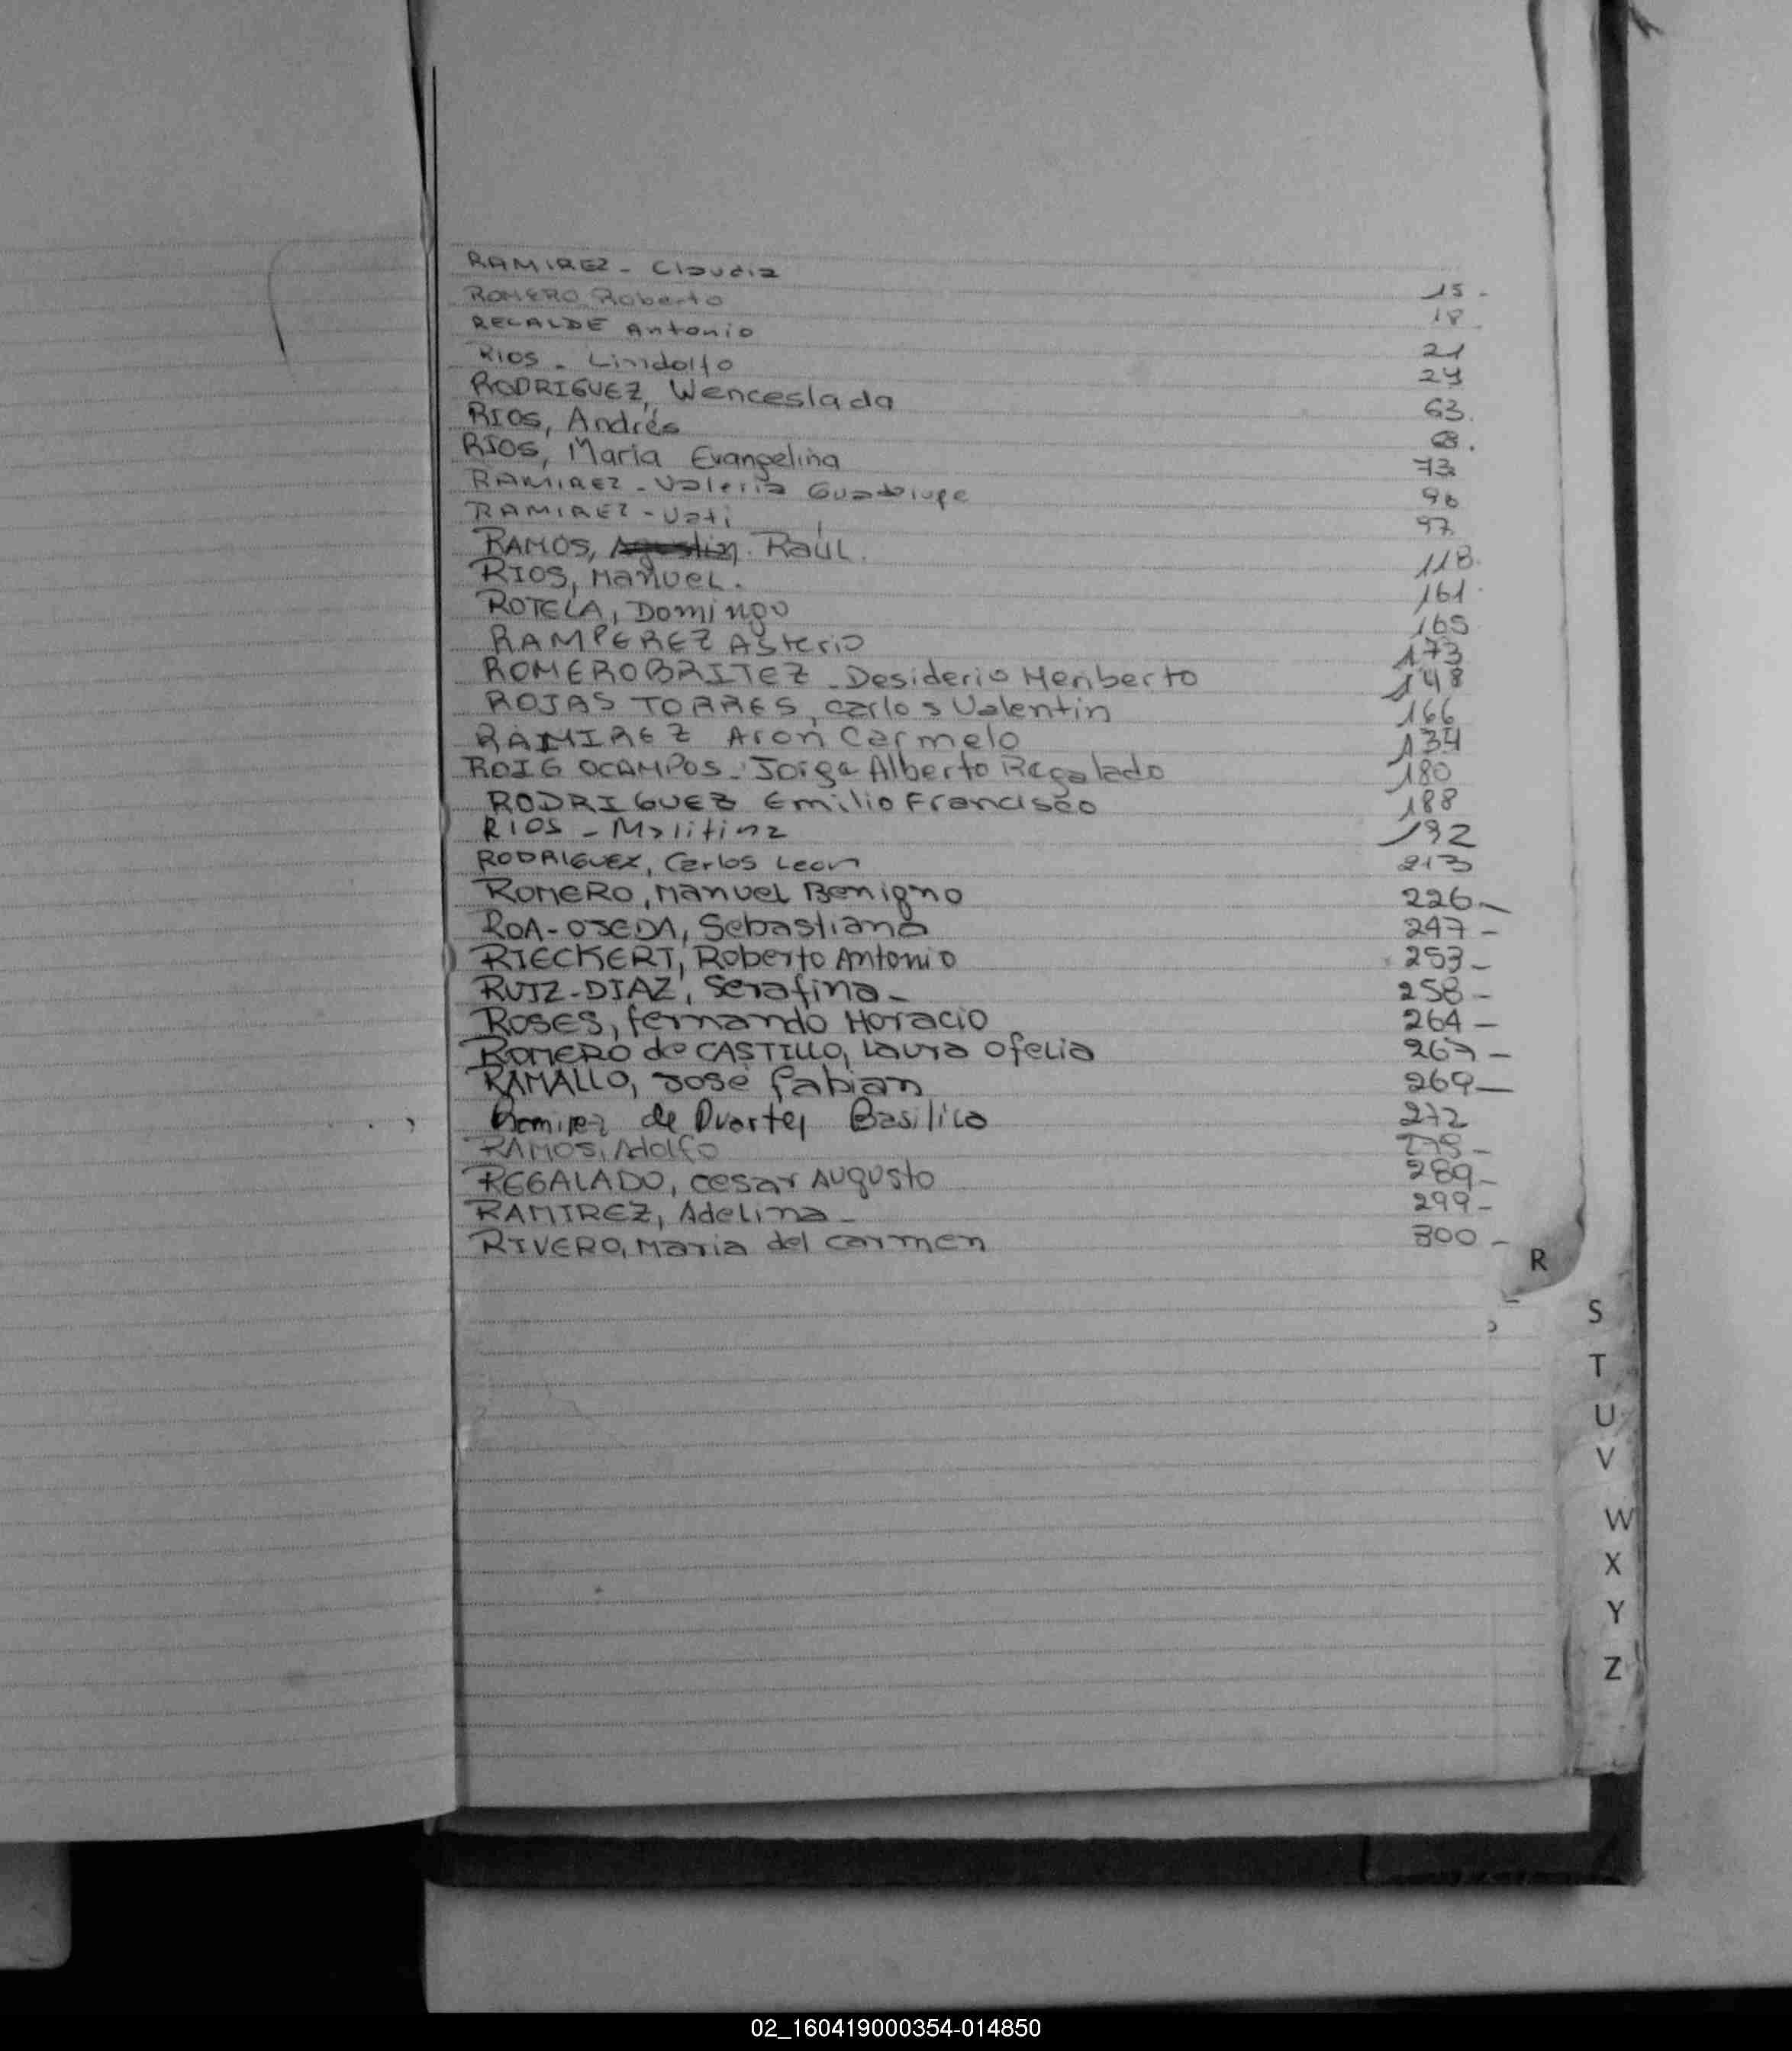 RAMIREZ - Claudia 15 -
ROMERO Roberto 18
RECALDE Antonio 21
RIOS - Lindolfo 24
RODRIGUEZ, Wenceslada 63.
RIOS, Andrés 68.
RIOS, María Evangelina 73
RAMIREZ - Valeria Guadalupe 96
RAMIREZ - Vati 97
RAMOS, Agustin. Raúl. 118.
RIOS, Manuel. 161.
ROTELA, Domingo 165
RAMPEREZ Asterio 173
ROMERO BRITEZ - Desiderio Heriberto 148
ROJAS TORRES, Carlos Valentin 166
RAMIREZ Aron Carmelo 134
ROIG OCAMPOS - Jorge Alberto Regalado 180
RODRIGUEZ Emilio Francisco 188
RIOS - Malitina 192
RODRIGUEZ, Carlos Leon 213
ROMERO, Manuel Benigno 226 -
ROA-OJEDA, Sebastiana 247 -
RIECKERT, Roberto Antonio 253 -
RUIZ-DIAZ, Serafina - 258 -
ROSES, fernando Horacio 264 -
ROMERO de CASTILLO, Laura Ofelia 267 -
RAMALLO, José fabian 269 -
Ramirez de Duarte, Basilica 272
RAMOS, Adolfo -
REGALADO, Cesar Augusto 289 -
RAMIREZ, Adelina - 299 -
RIVERO, Maria del Carmen 300 -
R
S
T
U
V
W
X
Y
Z
02_160419000354-014850